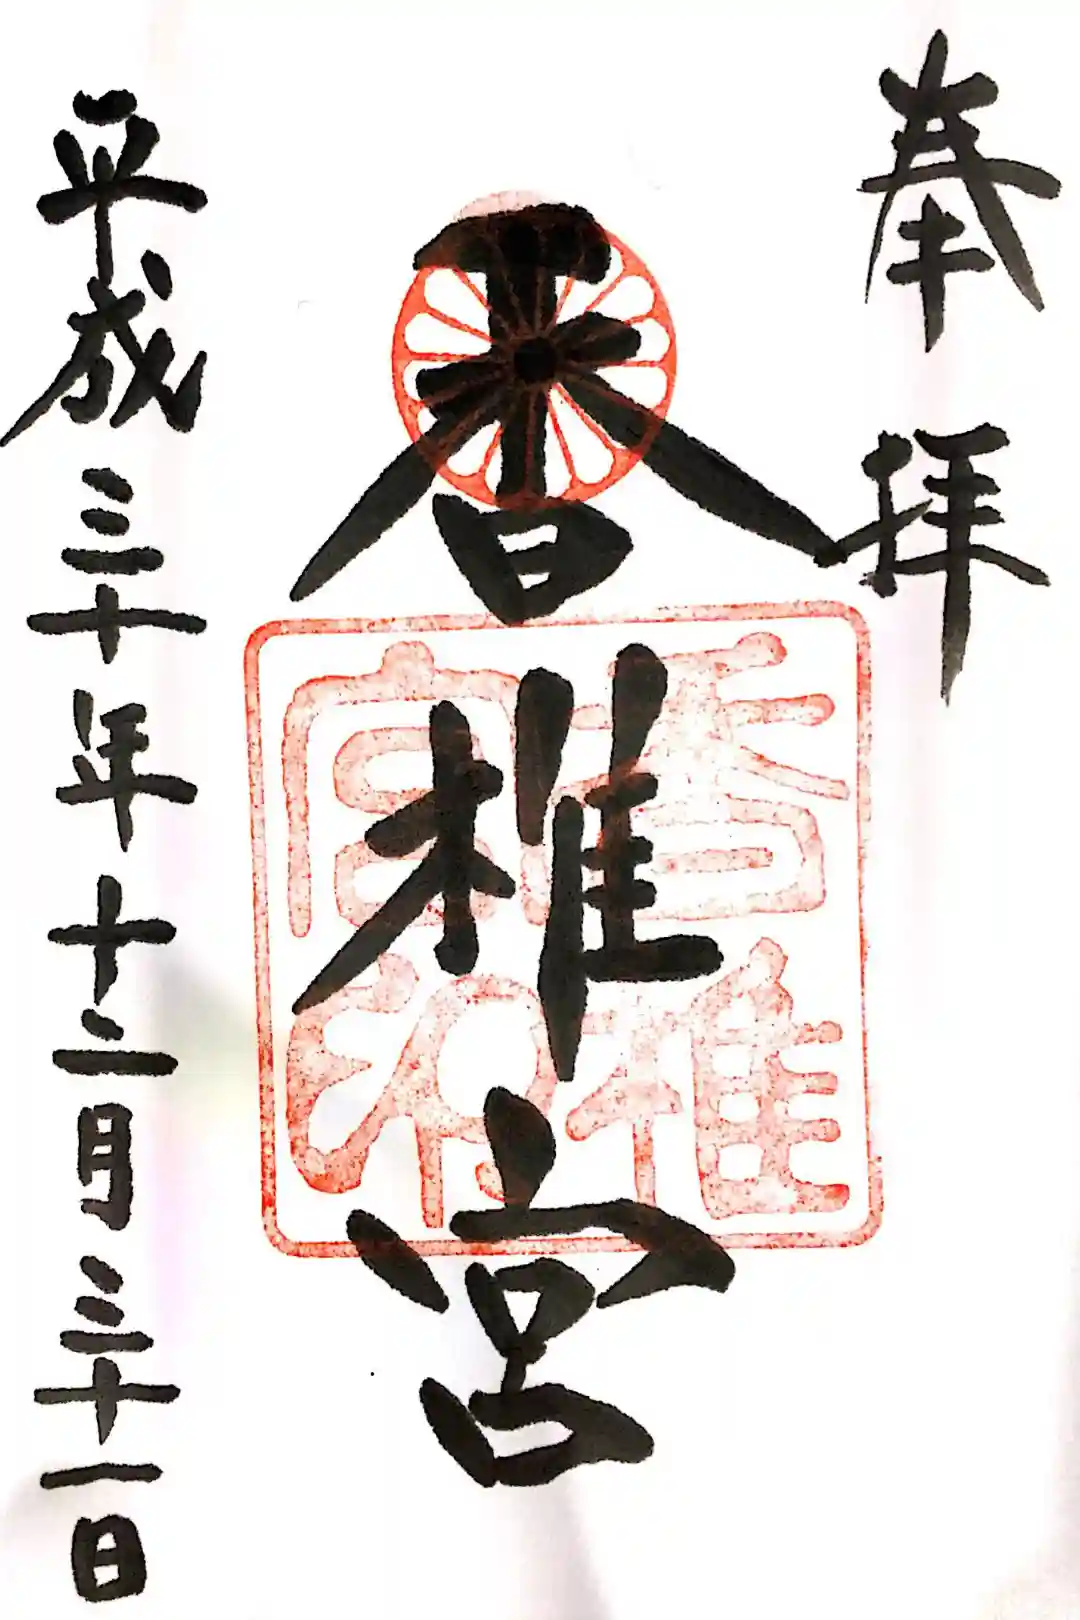 奉拝
香椎宮
香椎宮印
平成三十年十二月三十一日